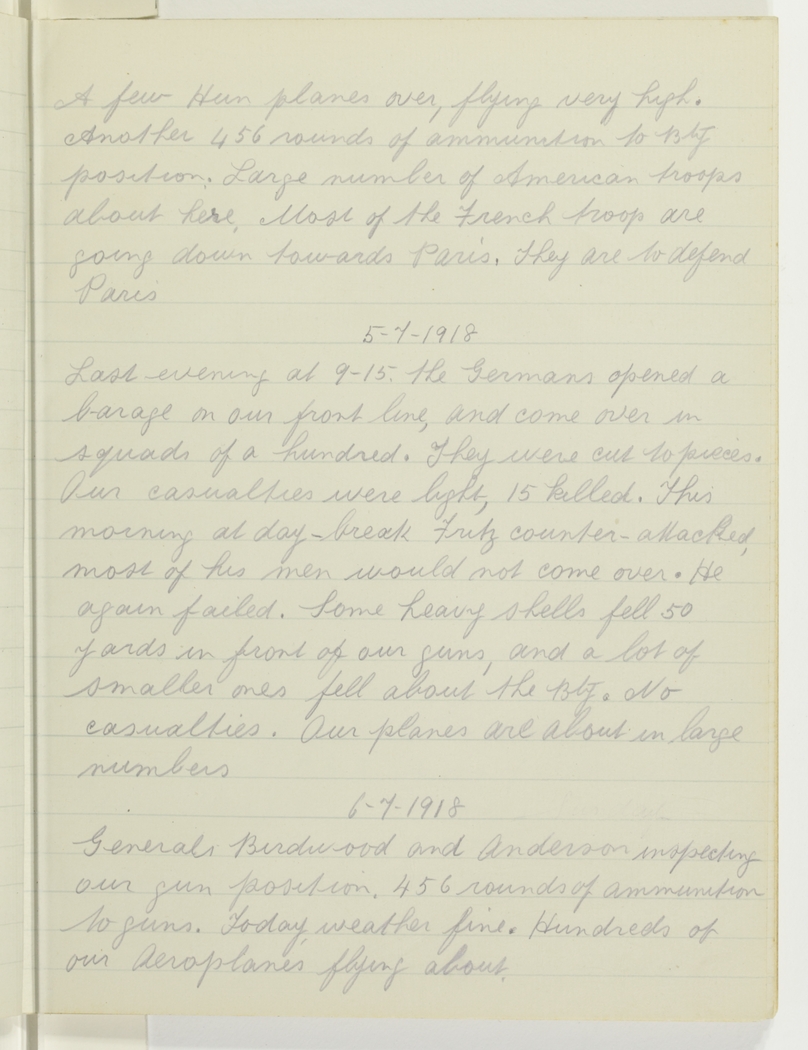 A few Hun planes over, flying very high.
Another 456 rounds of ammunition to Bty
position. Large number of American troops
about here, Most of the French troop are
going down towards Paris. They are to defend
Paris
5-7-1918
Last evening at 9-15. the Germans opened a
barage on our front line, and come over in
squads of a hundred. They were cut to pieces.
Our casualties were light, 15 killed. This
morning at day-break Fritz counter-attacked,
most of his men would not come over. He
again failed. Some heavy shells fell 50
yards in front of our guns, and a lot of
smaller ones fell about the Bty. No
casualties. Our planes are about in large
numbers
6-7-1918
Generals Birdwood and Anderson inspecting
our gun position. 456 rounds of ammunition
to guns. Today weather fine. Hundreds of
our Aeroplanes flying about.